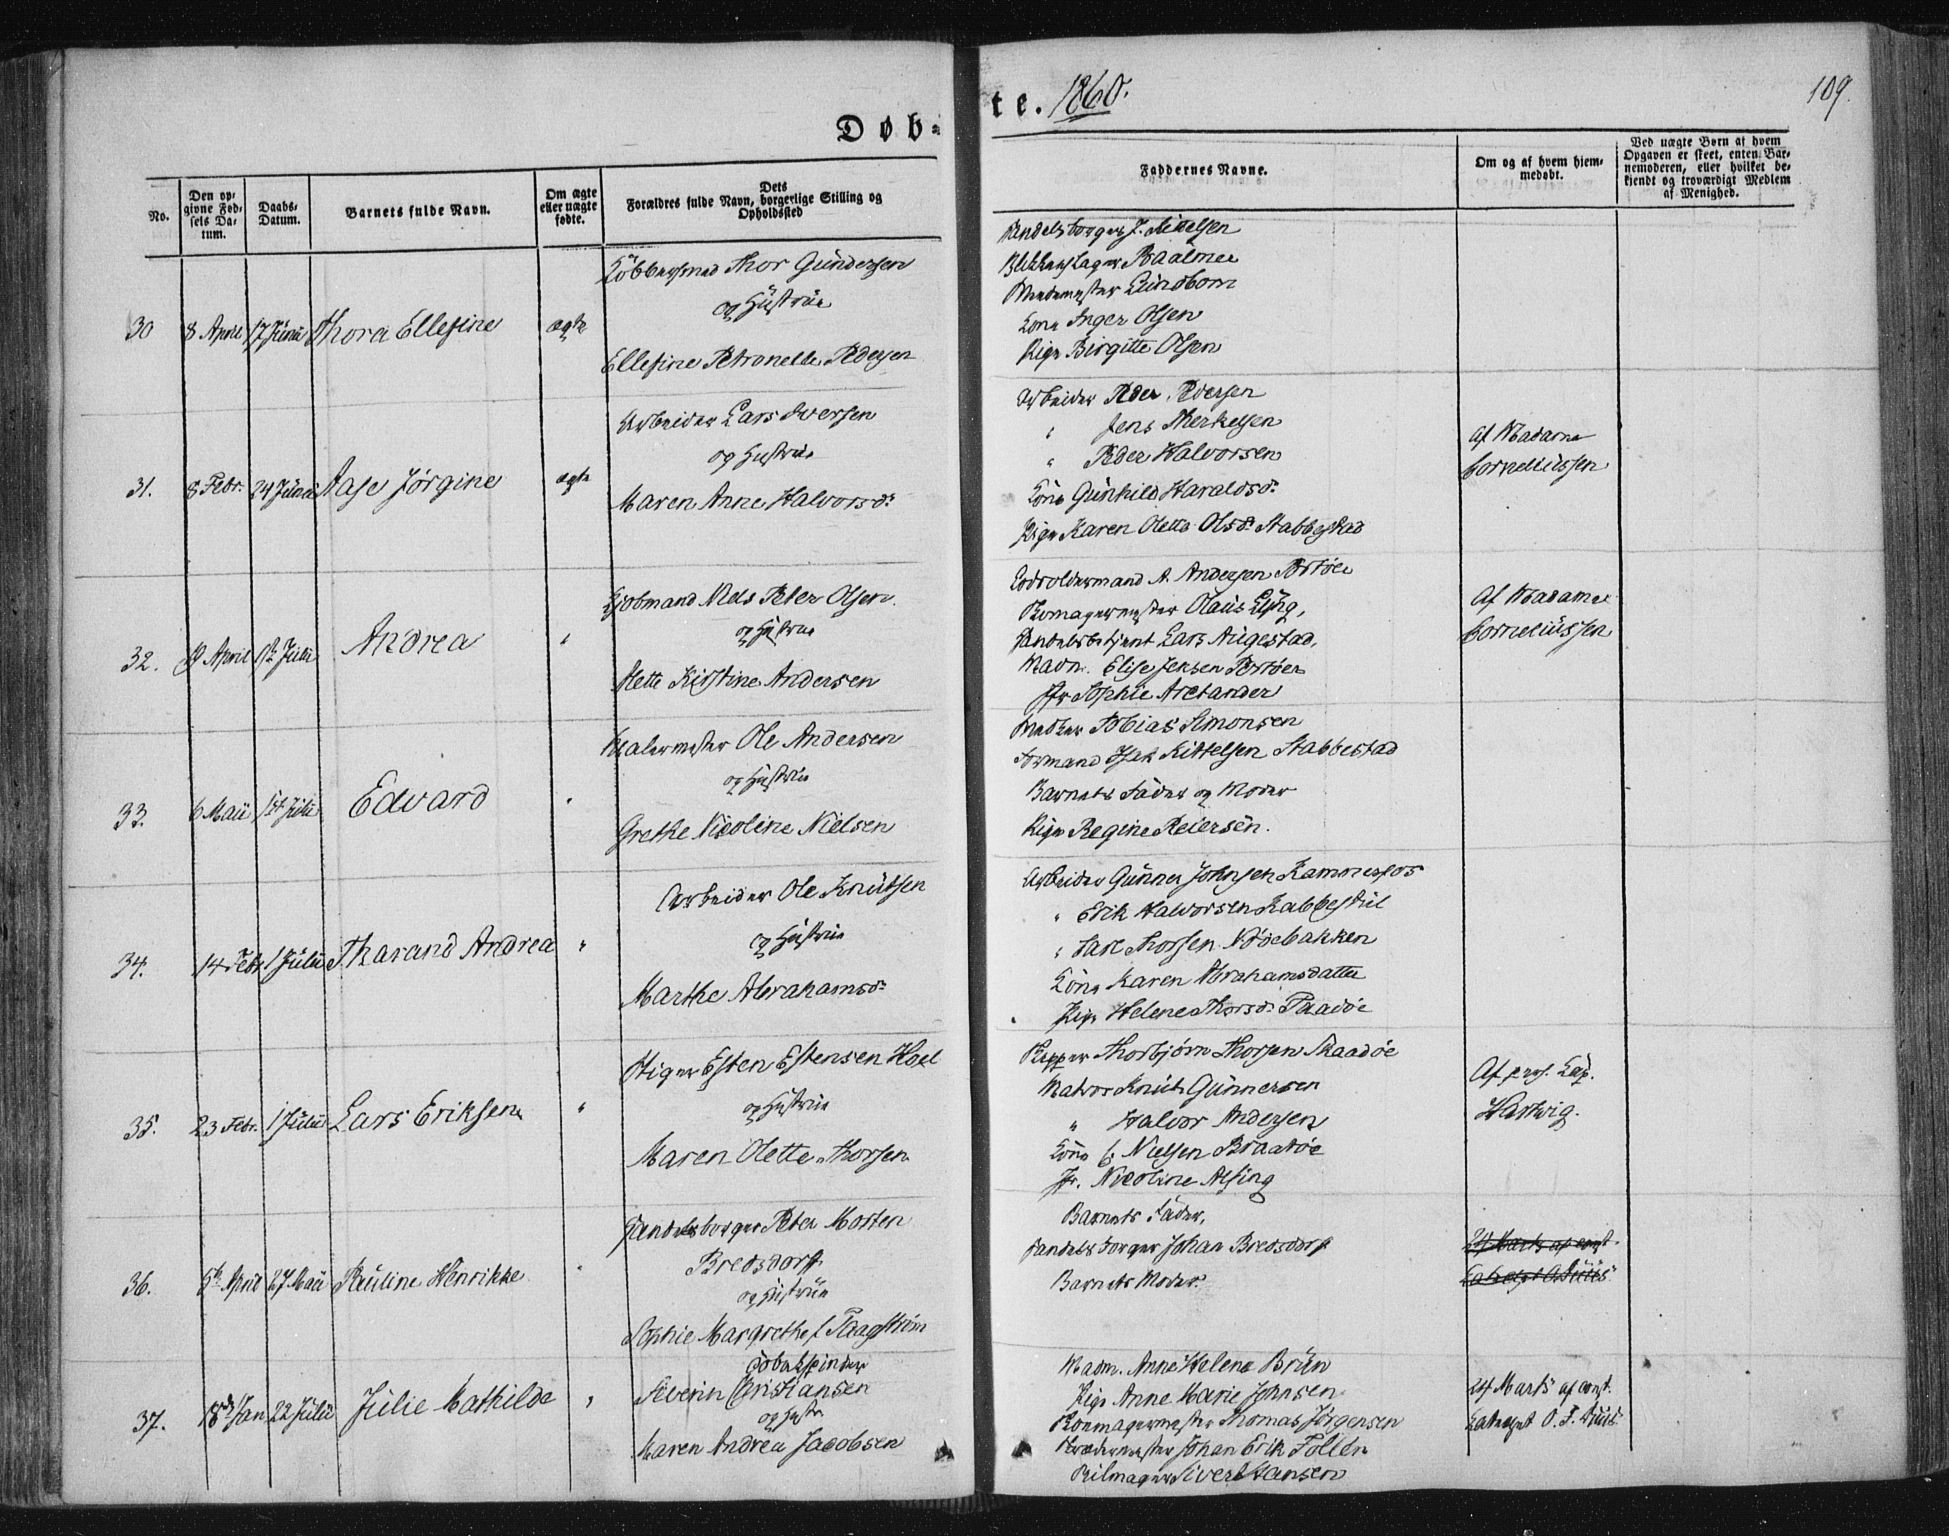 Døb-
te. 1860.
109.
No.
Den op-
givne Fød-
sels Da-
tum.
Daabs-
Datum.
Barnets fulde Navn.
Om ægte
eller uægte
fødte.
Dets
Forældres fulde Navn, borgerlige Stilling og
Opholdssted
Faddernes Navne.
Om og af hvem hjem-
medøbt.
Ved uægte Børn af hvem
Opgaven er skeet, enten Bar-
nemoderen, eller hvilket be-
kjendt og troværdigt Medlem
af Menighed.
30 8 April 17 Junii Thora Ellefine ægte
Kobbersmed Thor Gundersen
og Hustrue
Ellefine Petronelle Pedersen
Handelsborger J. Nielsen
Blikkenslager Baalmer
Lundbom
Kone Inger Olsen
Pige Birgitte Olsen
31. 8 Febr. 24 Junii Aase Jørgine ægte
Arbeider Lars Iversen
og Hustrue
Maren Anne Halvorsd.
Arbeider Peder Pedersen
" Jens Therkelsen
" Peder Halvorsen
Kone Gunhild Haraldsd.
Pige Karen Olette Olsd. Stabbestad
Af Madame
Corneliussen
32. April 1st Julii Andrea "
Kjøbmand Niels Peter Olsen
og Hustrue
Mette Kirstine Andersen
Lodsoldermand A. Andersen Portøer
Garmagermester Olaus Lyng,
Handelsbetjent Lars Augestad,
Madm. Elise Jensen Portøer
Jfr Sophie Arctander
Af Madame
Corneliussen
33. 6 Maii 1st Julii Edvard "
Malermester Ole Andersen
og Hustrue
Grethe Nicoline Nielsen
Tobias Simonsen
Formand Isak Kittelsen Stabbestad
Barnets Fader og Moder
Pige Regine Reiersen.
34. 14 Febr 1 Julii Tharand Andrea "
Arbeider Ole Knutsen
og Hustrue
Marthe Abrahamsd.
Arbeider Gunner Johnsen Kammerfos
" Erik Halvorsen Kalbestiel
" Carl Thorsen
Kone Karen Abrahamsdatter
Pige Helene Thorsd. Skaadøe
35. 23 Febr. 1 Julii Lars Eriksen "
Stiger Esten Estensen Hoel
og Hustrue
Maren Olette Thorsen
Skipper Thorbjørn Thorsen Skaadøe
Matros Knut Gunnersen
" Halvor Andersen
Kone Nielsen Braatøe
Jfr. Nicoline Alsing
Af pers. Cap.
Hartvig.
36. 5te April 27 Maii Pauline Henrikke "
Handelsborger Peter Morten
Bredsdorff
og Hustrue
Sophie Margrethe f. Taagstrøm
Barnets Fader,
Handelsborger Johan Bredsdorff
Barnets Moder.
24 Marts af const.
37. 18d Jan 22 Julii Julie Mathilde "
Tobakspinder
Severin Christiansen
og Hustr
Maren Andrea Jacobsen
Madm. Anne Helene Brun
Pige Anne Marie Johnsen
Thomas Jørgensen
Skrædermester Johan Erik Follin
Sivert Hansen
24 Marts af const.
Catechet